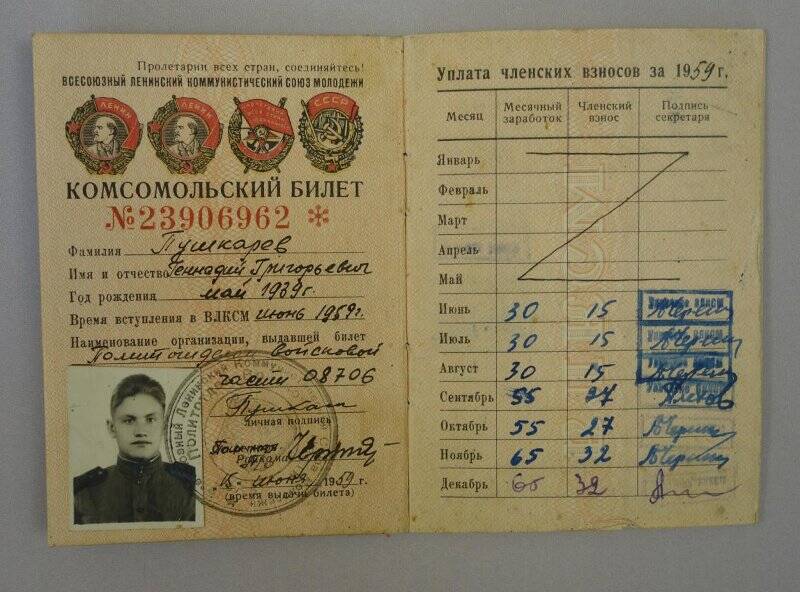 Пролетарии всех стран, соединяйтесь!
ВСЕСОЮЗНЫЙ ЛЕНИНСКИЙ КОММУНИСТИЧЕСКИЙ СОЮЗ МОЛОДЕЖИ
ЛЕНИН ЛЕНИН СССР
КОМСОМОЛЬСКИЙ БИЛЕТ
№23906962 *
Фамилия Пушкарев
Имя и отчество Геннадий Григорьевич
Год рождения май 1939г.
Время вступления в ВЛКСМ июнь 1959г.
Наименование организации, выдавшей билет
Политотделом войсковой
части 08706
личная подпись
15 июня 1959г.
(время выдачи билета)
Уплата членских взносов за 1959г.
Месяц Месячный заработок Членский взнос Подпись секретаря
Январь
Февраль
Март
Апрель
Май
Июнь 30 15
Июль 30 15
Август 30 15
Сентябрь 55 27
Октябрь 55 27
Ноябрь 65 32
Декабрь 65 32